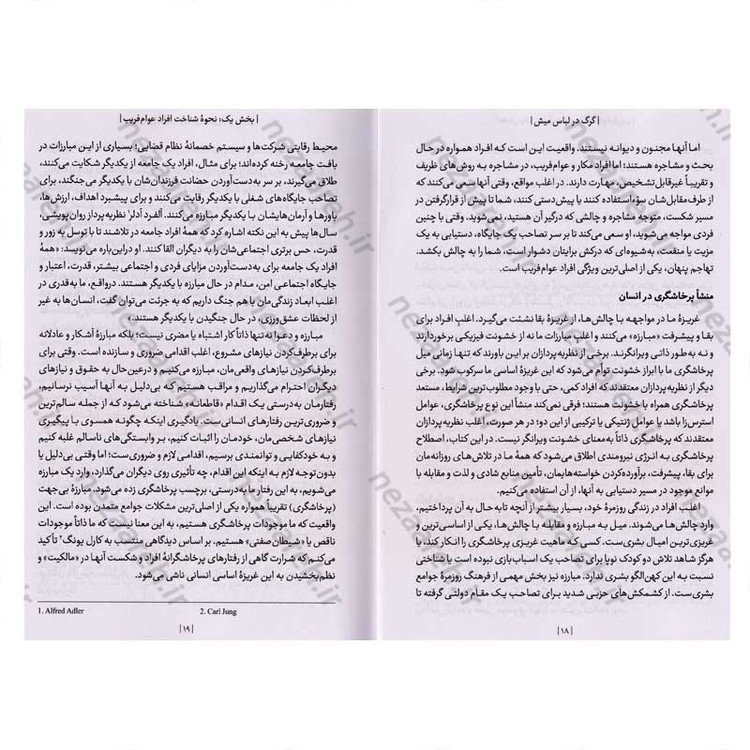 | گرگ در لباس میش |
اما آنها مجنون و دیوانه نیستند. واقعیت این است که افراد همواره در حال
بحث و مشاجره هستند؛ اما افراد مکار و عوام‌فریب، در مشاجره به روش‌های ظریف
و تقریباً غیرقابل‌تشخیص، مهارت دارند. در اغلب مواقع، وقتی آنها سعی می‌کنند که
از طرف مقابل‌شان سوءاستفاده کنند یا پیش‌دستی کنند، شما تا پیش از قرارگرفتن در
مسیر شکست، متوجه مشاجره و چالشی که درگیر آن هستید، نمی‌شوید. وقتی با چنین
فردی مواجه می‌شوید، او سعی می‌کند تا بر سر تصاحب یک جایگاه، دستیابی به یک
مزیت یا منفعت، به‌شیوه‌ای که درکش برایتان دشوار است، شما را به چالش بکشد.
تهاجم پنهان، یکی از اصلی‌ترین ویژگی افراد عوام‌فریب است.
منشأ پرخاشگری در انسان
غریزهٔ ما در مواجهه با چالش‌ها، از غریزهٔ بقا نشئت می‌گیرد. اغلبِ افراد برای
بقا و پیشرفت «مبارزه» می‌کنند و اغلبِ مبارزات ما نه از خشونت فیزیکی برخوردارند
و نه به‌طور ذاتی ویرانگرند. برخی از نظریه‌پردازان بر این باورند که تنها زمانی میل
پرخاشگری ما با ابراز خشونت توأم می‌شود که این غریزهٔ اساسی ما سرکوب شود. برخی
دیگر از نظریه‌پردازان معتقدند که افراد کمی، حتی با وجود مطلوب‌ترین شرایط، مستعد
پرخاشگری همراه با خشونت هستند؛ فرقی نمی‌کند منشأ این نوع پرخاشگری، عوامل
استرس‌زا باشد یا عوامل ژنتیکی یا ترکیبی از این دو؛ در هر صورت، اغلب نظریه‌پردازان
معتقدند که پرخاشگری ذاتاً به‌معنای خشونت ویرانگر نیست. در این کتاب، اصطلاح
پرخاشگری به انرژی نیرومندی اطلاق می‌شود که همهٔ ما در تلاش‌های روزانه‌مان
برای بقا، پیشرفت، برآورده‌کردن خواسته‌هایمان، تأمین منابع شادی و لذت و مقابله با
موانع موجود در مسیر دستیابی به آنها، از آن استفاده می‌کنیم.
اغلب افراد در زندگی روزمرهٔ خود، بسیار بیشتر از آنچه تابه‌حال به آن پرداختیم،
وارد چالش‌ها می‌شوند. میل به مبارزه و مقابله با چالش‌ها، یکی از اساسی‌ترین و
غریزی‌ترین امیال بشری ست. کسی که ماهیت غریزی پرخاشگری را انکار کند، یا
هرگز شاهد تلاش دو کودک نوپا برای تصاحب یک اسباب‌بازی نبوده است یا شناختی
نسبت به این کهن‌الگو بشری ندارد. مبارزه نیز بخش مهمی از فرهنگ روزمرهٔ جوامع
بشری ست. از کشمکش‌های حزبی شدید برای تصاحب یک مقام دولتی گرفته تا
| ۱۸ |
| بخش یک: نحوهٔ شناخت افراد عوام‌فریب |
محیط رقابتی شرکت‌ها و سیستم خصمانهٔ نظام قضایی؛ بسیاری از این مبارزات در
بافت جامعه رخنه کرده‌اند؛ برای مثال، افراد یک جامعه از یکدیگر شکایت می‌کنند،
طلاق می‌گیرند، بر سر به‌دست‌آوردن حضانت فرزندان‌شان با یکدیگر می‌جنگند، برای
تصاحب جایگاه‌های شغلی با یکدیگر رقابت می‌کنند و برای پیشبرد اهداف، ارزش‌ها،
باورها و آرمان‌هایشان با یکدیگر مبارزه می‌کنند. آلفرد آدلر¹ نظریه‌پرداز روان‌پویشی،
سال‌ها پیش به این نکته اشاره کرد که همهٔ افراد جامعه در تلاشند تا با توسل به زور و
قدرت، حس برتری اجتماعی‌شان را به دیگران القا کنند. او دراین‌باره می‌نویسد: «همهٔ
افراد یک جامعه برای به‌دست‌آوردن مزایای فردی و اجتماعی بیشتر، قدرت، اعتبار و
جایگاه اجتماعی امن، مدام در حال مبارزه با یکدیگر هستند. درواقع، ما به‌قدری در
اغلب ابعاد زندگی‌مان با هم جنگ داریم که به جرئت می‌توان گفت، انسان‌ها به غیر
از لحظات عشق‌ورزی، در حال جنگیدن با یکدیگر هستند.»
مبارزه و دعوا نه‌تنها ذاتاً کار اشتباه یا مضری نیست؛ بلکه مبارزهٔ آشکار و عادلانه
برای برطرف‌کردن نیازهای مشروع، اغلب اقدامی ضروری و سازنده است. وقتی برای
برطرف‌کردن نیازهای واقعی‌مان، مبارزه می‌کنیم و درعین‌حال به حقوق و نیازهای
دیگران احترام می‌گذاریم و مراقب هستیم که بی‌دلیل به آنها آسیب نرسانیم،
رفتارمان به‌درستی یک اقدام «قاطعانه» شناخته می‌شود که از جمله سالم‌ترین
و ضروری‌ترین رفتارهای انسانی‌ست. یادگیری اینکه چگونه همسوی با پیگیری
نیازهای شخصی‌مان، خودمان را اثبات کنیم، بر وابستگی‌های ناسالم غلبه کنیم
و به خودکفایی و توانمندی برسیم، اقدامی لازم و ضروری‌ست؛ اما وقتی بی‌دلیل یا
بدون‌توجه لازم به اینکه این اقدام، چه تأثیری روی دیگران می‌گذارد، وارد یک مبارزه
می‌شویم، به این رفتار ما به‌درستی، برچسب پرخاشگری زده می‌شود. مبارزهٔ بی‌جهت
(پرخاشگری) تقریباً همواره یکی از اصلی‌ترین مشکلات جوامع متمدن بوده است. این
واقعیت که ما موجودات پرخاشگری هستیم، به این معنا نیست که ما ذاتاً موجودات
ناقص یا «شیطان‌صفتی» هستیم. بر اساس دیدگاهی منتسب به کارل یونگ² تأکید
می‌کنم که شرارت گاهی از رفتارهای پرخاشگرانهٔ افراد و شکست آنها در «مالکیت» و
نظم‌بخشیدن به این غریزهٔ اساسی انسانی ناشی می‌شود.
1. Alfred Adler 2. Carl Jung
| ۱۹ |